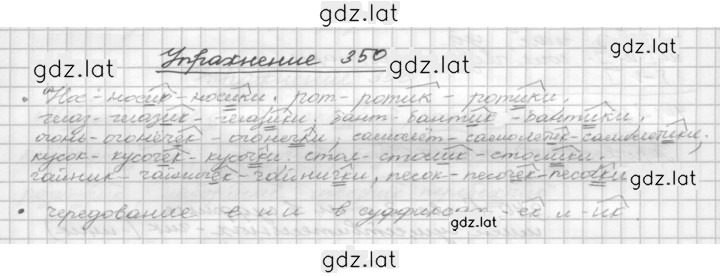 gdz.latat
Упражнение 350
gdz.lat
gdz.lat
• Нос - носик - носики, рот - ротик - ротики,
глаз - глазик - глазики, бант - бантик - бантики,
огонь - огонёчек - огонёчки, самолёт - самолётик - самолётики,
кусок - кусочек - кусочки, стол - столик - столики,
чайник - чайничек - чайнички, песок - песочек - песочки
gdz.lat
• чередование е и и в суффиксах -ек и -ик.
gdz.lat
gdz.lat